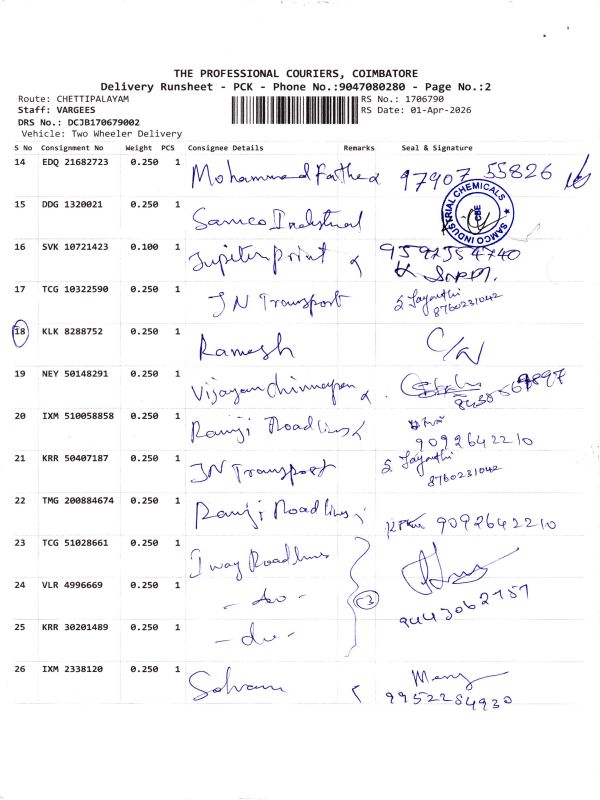 THE PROFESSIONAL COURIERS, COIMBATORE
Delivery Runsheet - PCK - Phone No.:9047080280 - Page No.:2
Route: CHETTIPALAYAM RS No.: 1706790
Staff: VARGEES RS Date: 01-Apr-2026
DRS No.: DCJB170679002
Vehicle: Two Wheeler Delivery
S No Consignment No Weight PCS Consignee Details Remarks Seal & Signature
14 EDQ 21682723 0.250 1 Mohammed 97907 55826
15 DDG 1320021 0.250 1 Samco Industrial SAMCO INDUSTRIAL CHEMICALS CBE
16 SVK 10721423 0.100 1 Jupiter print
17 TCG 10322590 0.250 1 JN Transport S. Jayanthi 8760231042
18 KLK 8288752 0.250 1 Ramesh C/N
19 NEY 50148291 0.250 1 Vijayan Chinnayan
20 IXM 510058858 0.250 1 Ramji Roadlines 9092642210
21 KRR 50407187 0.250 1 JN Transport S. Jayanthi 8760231042
22 TMG 200884674 0.250 1 Ramji Roadlines 9092642210
23 TCG 51028661 0.250 1 Iway Roadlines
24 VLR 4996669 0.250 1 - do - 3 9443062157
25 KRR 30201489 0.250 1 - do -
26 IXM 2338120 0.250 1 Selvam 9952284930